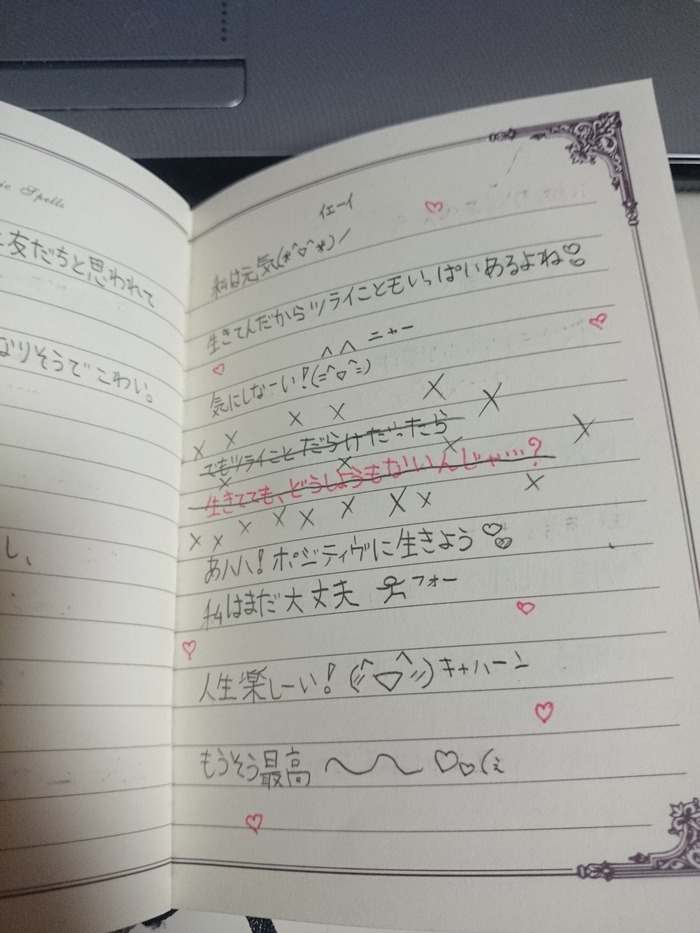 ic Spells
友だちと思われて
なりそうでこわい。
し、
イエーイ
私は元気(*^▽^*)/
生きてんだからツライこともいっぱいあるよね♡♡
^ ^ ニャー
気にしなーい!(=^▽^=)
でもツライことだらけだったら
生きてても、どうしようもないんじゃ…?
あハハ!ポジティヴに生きよう♡♡
私はまだ大丈夫 フォー
人生楽しーい!(〃^▽^〃)キャハーン
もうそう最高 〜〜 ♡♡